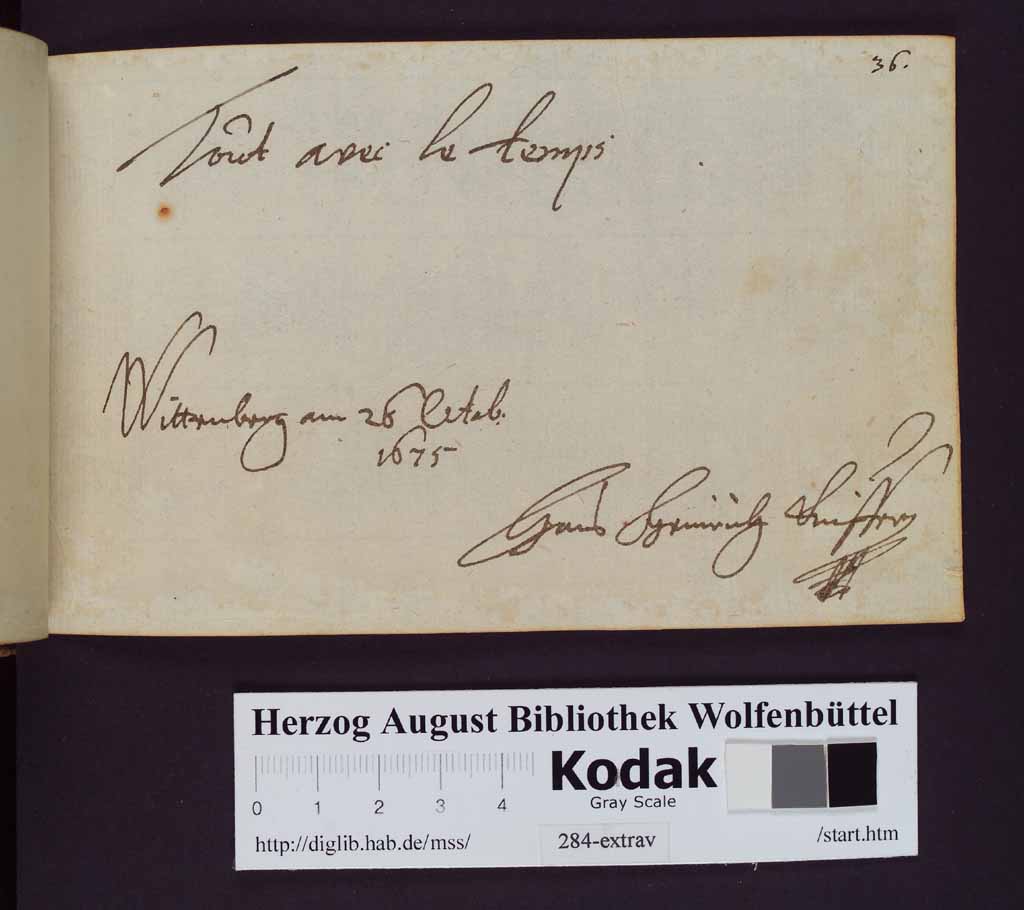 36.
Tout avec le temps
Wittenberg am 26 Octob.
1675
Hans Heinrich
Herzog August Bibliothek Wolfenbüttel
Kodak
Gray Scale
0 1 2 3 4
http://diglib.hab.de/mss/ 284-extrav /start.htm